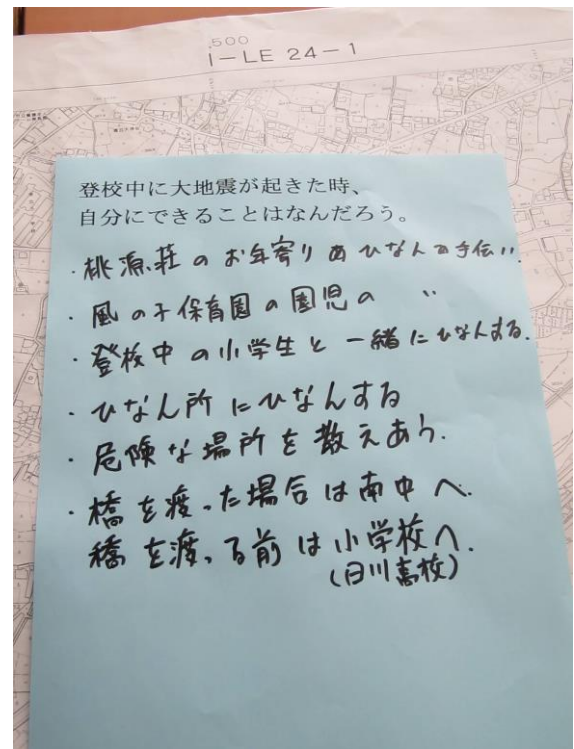 .500
I-LE 24-1
登校中に大地震が起きた時、
自分にできることはなんだろう。
・桃源荘のお年寄りのひなんの手伝い
・風の子保育園の園児の 〃
・登校中の小学生と一緒にひなんする.
・ひなん所にひなんする
・危険な場所を教えあう.
・橋を渡った場合は南中へ.
橋を渡る前は小学校へ.
(日川高校)